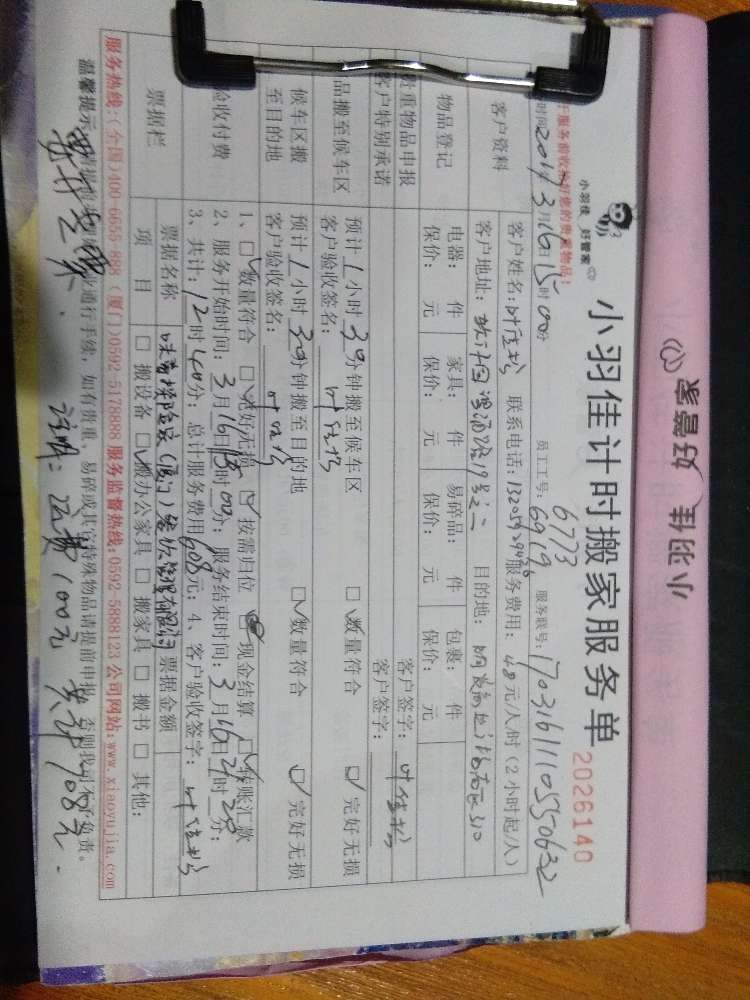 小羽佳 好管家
小羽佳 好管家
小羽佳计时搬家服务单
2026140
服务前收拾好您的贵重物品!
时间2017年3月16日15时00分 员工工号: 6773 6919 服务联号: 170316111055
客户资料
客户姓名: 联系电话: 服务费用: 48元/人/时 (2小时起/人)
客户地址: 目的地:
物品登记
电器: 件 家具: 件 易碎品: 件 包裹: 件
保价: 元 保价: 元 保价: 元 保价: 元
贵重物品申报 客户签字:
客户特别承诺 客户签字:
品搬至候车区
预计1小时30分钟搬至候车区 □数量符合 □完好无损
客户验收签名:
候车区搬至目的地
预计1小时30分钟搬至目的地 □数量符合 □完好无损
客户验收签名:
验收付费
1、□数量符合 □完好无损 □按需归位 □现金结算 □转账汇款
2、服务开始时间: 3月16日15时00分; 服务结束时间: 3月16日21时20分;
3、共计: 12时40分; 总计服务费用608元; 4、客户验收签字:
票据栏
票据名称 (厦门)餐饮管理有限公司 票据金额
项目 □搬设备 □搬办公家具 □搬家具 □搬书 □其他:
服务热线:(全国)400-6656-888 (厦门)0592-5178888 服务监督热线:0592-5888123 公司网站:www.xiaoyujia.com
温馨提示: 通行手续, 如有贵重、易碎或其它特殊物品请提前申报, 否则我司不予负责。
注明: 运费100元 共计708元.